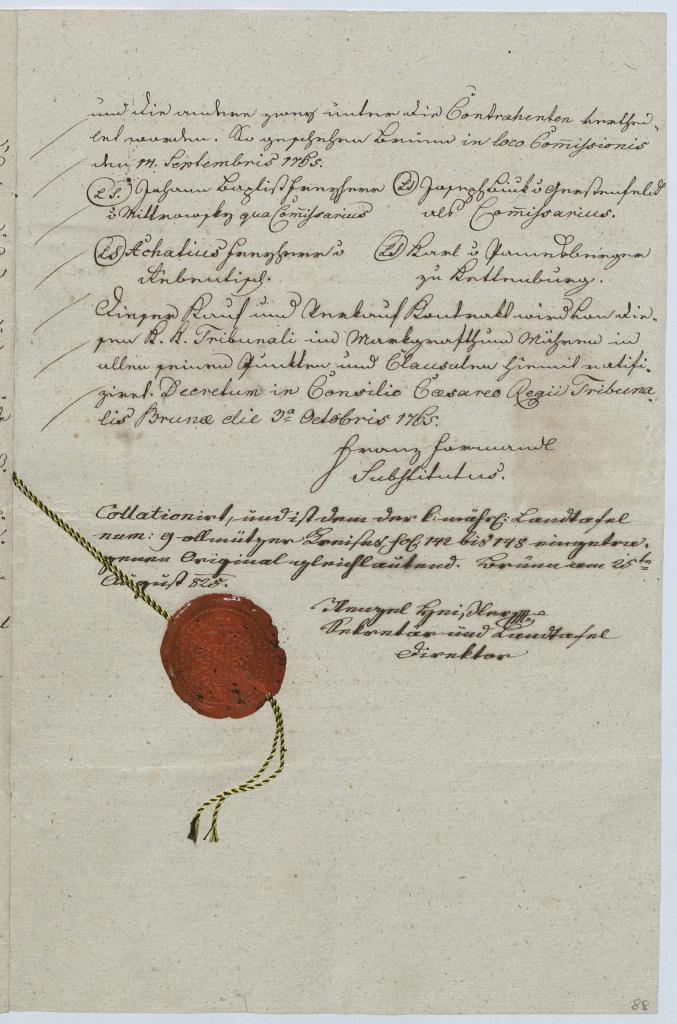 und die andere zwey unter die Contrahenten verthei-
let worden. So geschehen Brünn in loco Commissionis
den 14. Septembris 1765.
L.S. Johann Baptist Freyherr
v Mittrowsky qua Commissarius
LS Joseph v Gerstenfeld
als Commissarius.
LS Achatius Freyherr v
Rebentisch.
LS Karl v
zu Kettenburg.
Dieser Kauf und Verkauf Kontrakt wird von die-
sem K. K. Tribunali im Markgrafthum Mähren in
allen seinen Punkten und Clausulen hiemit ratifi-
ziret. Decretum in Consilio Cæsareo Regii Tribuna-
lis Brunæ die 3a Octobris 1765.
Franz
Substitutus.
Collationirt, und ist dem der k: mähr: Landtafel
num: 9 ollmützer Kreises fol: 142 bis 148 eingetra-
genen Original gleichlautend. Brünn am 25te
August 825.
Wenzel
Sekretär und Landtafel
Direktor
88